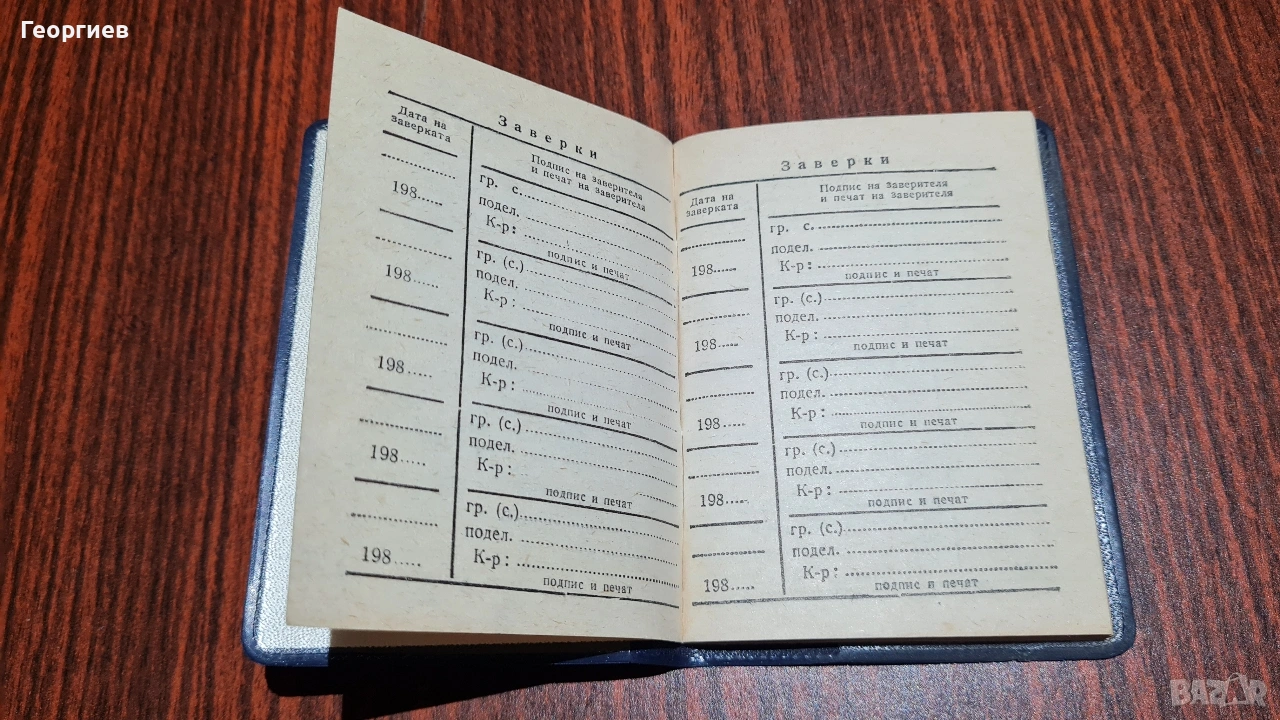 Георгиев
Заверки
Дата на
заверката
Подпис на заверителя
и печат на заверителя
198......
гр. с.
подел.
К-р:
подпис и печат
198......
гр. (с.)
подел.
К-р:
подпис и печат
198.....
гр. (с.)
подел.
К-р:
подпис и печат
198.....
гр. (с.)
подел.
К-р:
подпис и печат
198.....
гр. (с.)
подел.
К-р:
подпис и печат
Заверки
Дата на
заверката
Подпис на заверителя
и печат на заверителя
198.....
гр. с.
подел.
К-р:
подпис и печат
198.....
гр. (с.)
подел.
К-р:
подпис и печат
198.....
гр. (с.)
подел.
К-р:
подпис и печат
198.....
гр. (с.)
подел.
К-р:
подпис и печат
198.....
гр. (с.)
подел.
К-р:
подпис и печат
BAZAR